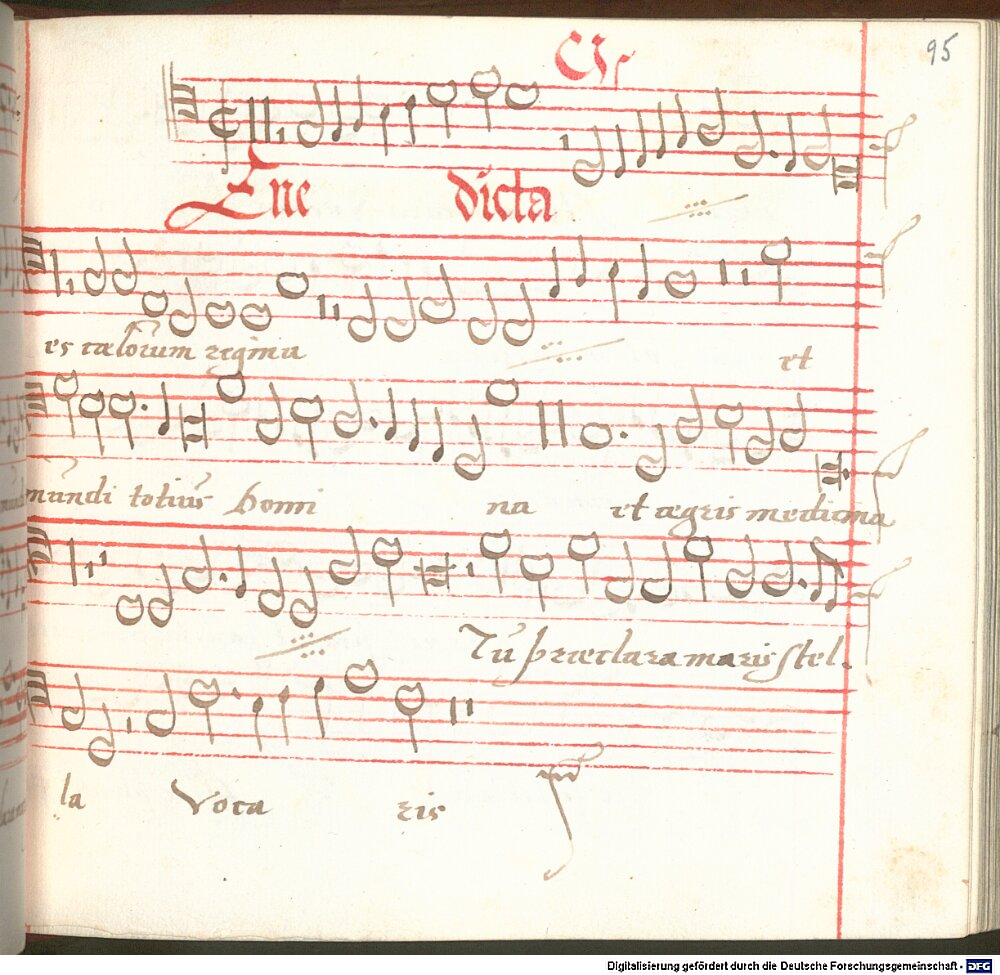 95
Ene dicta
es cælorum regina et
mundi totius domi na et ægris medicina
Tu præclara maris stel-
la Voca ris
Digitalisierung gefördert durch die Deutsche Forschungsgemeinschaft - DFG